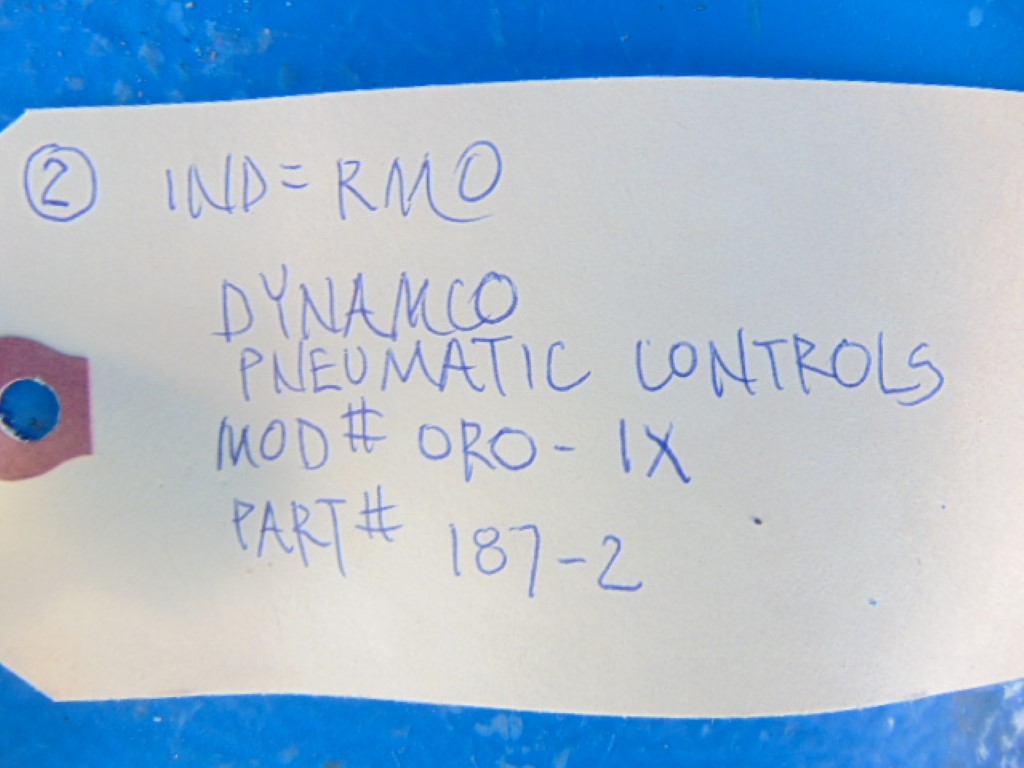 ② IND=RMO
DYNAMCO
PNEUMATIC CONTROLS
MOD# ORO-1X
PART# 187-2